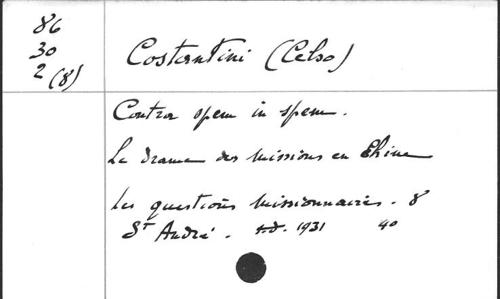 86
30
2 (8)
Costantini (Celso)
Contra spem in spem.
Le drame des missions en Chine
Les questions missionnaires. 8
St André. s.d. 1931 40